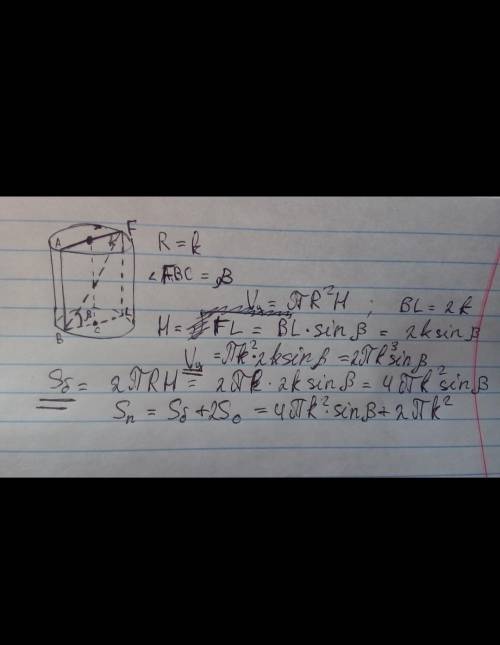 A F
B β C L
R = k
∠FBC = β
Vц = πR²H ; BL = 2k
H = FL = BL · sin β = 2k sin β
Vц = πk² · 2k sin β = 2πk³ sin β
Sб = 2πRH = 2πk · 2k sin β = 4πk² sin β
Sп = Sб + 2S₀ = 4πk² · sin β + 2πk²